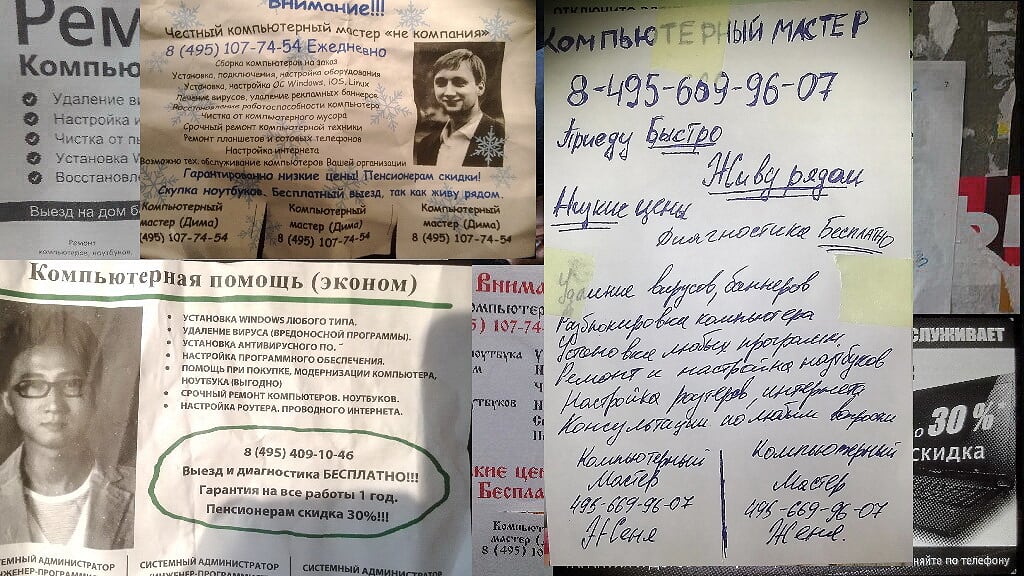 Рем
Компью
Удаление ви
Настройка и
Чистка от пы
Установка W
Восстановле
Выезд на дом б
Ремонт
компьютеров, ноутбуков,
Внимание!!!
Честный компьютерный мастер «не компания»
8 (495) 107-74-54 Ежедневно
Сборка компьютеров на заказ
Установка, подключения, настройка оборудования
Установка, настройка ОС Windows, iOS, Linux
Лечение вирусов, удаление рекламных баннеров
Восстановление работоспособности компьютера
Чистка от компьютерного мусора
Срочный ремонт компьютерной техники
Ремонт планшетов и сотовых телефонов
Настройка интернета
Возможно тех. обслуживание компьютеров Вашей организации
Гарантированно низкие цены! Пенсионерам скидки!
Скупка ноутбуков. Бесплатный выезд, так как живу рядом.
Компьютерный
мастер (Дима)
(495) 107-74-54
Компьютерный
мастер (Дима)
8 (495) 107-74-54
Компьютерный
мастер (Дима)
8 (495) 107-74-54
Компьютерная помощь (эконом)
УСТАНОВКА WINDOWS ЛЮБОГО ТИПА.
УДАЛЕНИЕ ВИРУСА (ВРЕДОНОСНОЙ ПРОГРАММЫ).
УСТАНОВКА АНТИВИРУСНОГО ПО.
НАСТРОЙКА ПРОГРАММНОГО ОБЕСПЕЧЕНИЯ.
ПОМОЩЬ ПРИ ПОКУПКЕ, МОДЕРНИЗАЦИИ КОМПЬЮТЕРА,
НОУТБУКА (ВЫГОДНО)
СРОЧНЫЙ РЕМОНТ КОМПЬЮТЕРОВ. НОУТБУКОВ.
НАСТРОЙКА РОУТЕРА. ПРОВОДНОГО ИНТЕРНЕТА.
8 (495) 409-10-46
Выезд и диагностика БЕСПЛАТНО!!!
Гарантия на все работы 1 год.
Пенсионерам скидка 30%!!!
СТЕМНЫЙ АДМИНИСТРАТОР
СИСТЕМНЫЙ АДМИНИСТРАТОР
СИСТЕМНЫЙ АД
ЕНЕР-ПРОГРАММ
ИНЖЕНЕР-ПРОГРАММ
Внима
омпьютерн
5) 107-74-
ноутбука
утбуков
кие це
Беспла
Компью
мастер (
8 (495) 10
Компьютерный мастер
8-495-669-96-07
Приеду Быстро
Живу рядом
Низкие цены
Диагностика Бесплатно
Удаление вирусов, баннеров
Разблокировка компьютера
Установка любых программ,
Ремонт и настройка ноутбуков
Настройка роутеров, интернета
Консультации по любым вопросам
Компьютерный
Мастер
495-669-96-07
Женя
Компьютерный
Мастер
495-669-96-07
Женя.
СЛУЖИВАЕТ
о 30 %*
СКИДКА
найте по телефону